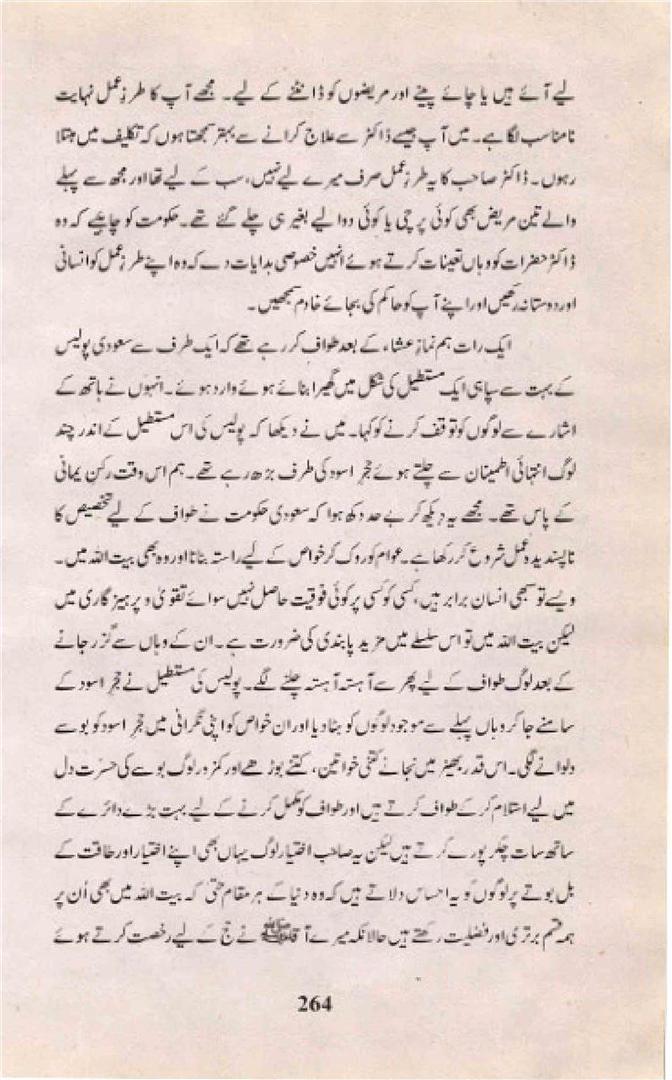 لیے آئے ہیں یا چائے پینے اور مریضوں کو ڈانٹنے کے لیے۔ مجھے آپ کا طرزِ عمل نہایت
نامناسب لگا ہے۔ میں آپ جیسے ڈاکٹر سے علاج کرانے سے بہتر سمجھتا ہوں کہ تکلیف میں مبتلا
رہوں۔ ڈاکٹر صاحب کا یہ طرزِ عمل صرف میرے لیے نہیں، سب کے لیے تھا اور مجھ سے پہلے
والے تین مریض بھی کوئی پرچی یا کوئی دوا لیے بغیر ہی چلے گئے تھے۔ حکومت کو چاہیے کہ وہ
ڈاکٹر حضرات کو وہاں تعینات کرتے ہوئے انہیں خصوصی ہدایات دے کہ وہ اپنے طرزِ عمل کو انسانی
اور دوستانہ رکھیں اور اپنے آپ کو حاکم کی بجائے خادم سمجھیں۔
ایک رات ہم نمازِ عشاء کے بعد طواف کر رہے تھے کہ ایک طرف سے سعودی پولیس
کے بہت سے سپاہی ایک مستطیل کی شکل میں گھیرا بنائے ہوئے وارد ہوئے۔ انہوں نے ہاتھ کے
اشارے سے لوگوں کو توقف کرنے کو کہا۔ میں نے دیکھا کہ پولیس کی اس مستطیل کے اندر چند
لوگ انتہائی اطمینان سے چلتے ہوئے حجرِ اسود کی طرف بڑھ رہے تھے۔ ہم اس وقت رکنِ یمانی
کے پاس تھے۔ مجھے یہ دیکھ کر بے حد دکھ ہوا کہ سعودی حکومت نے طواف کے لیے تخصیص کا
ناپسندیدہ عمل شروع کر رکھا ہے۔ عوام کو روک کر خواص کے لیے راستہ بنانا اور وہ بھی بیت اللہ میں۔
ویسے تو سبھی انسان برابر ہیں، کسی کو کسی پر کوئی فوقیت حاصل نہیں سوائے تقویٰ و پرہیزگاری میں
لیکن بیت اللہ میں تو اس سلسلے میں مزید پابندی کی ضرورت ہے۔ ان کے وہاں سے گزر جانے
کے بعد لوگ طواف کے لیے پھر سے آہستہ آہستہ چلنے لگے۔ پولیس کی مستطیل نے حجرِ اسود کے
سامنے جا کر وہاں پہلے سے موجود لوگوں کو ہٹا دیا اور ان خواص کو اپنی نگرانی میں حجرِ اسود کو بوسے
دلوانے لگی۔ اس قدر بھیڑ میں نجانے کتنی خواتین، کتنے بوڑھے اور کمزور لوگ بوسے کی حسرت دل
میں لیے استلام کر کے طواف کرتے ہیں اور طواف کو مکمل کرنے کے لیے بہت بڑے دائرے کے
ساتھ سات چکر پورے کرتے ہیں لیکن یہ صاحبِ اختیار لوگ یہاں بھی اپنے اختیار اور طاقت کے
بل بوتے پر لوگوں کو یہ احساس دلاتے ہیں کہ وہ دنیا کے ہر مقام حتیٰ کہ بیت اللہ میں بھی اُن پر
ہمہ قسم برتری اور فضلیت رکھتے ہیں حالانکہ میرے آقا ﷺ نے حج کے لیے رخصت کرتے ہوئے
264